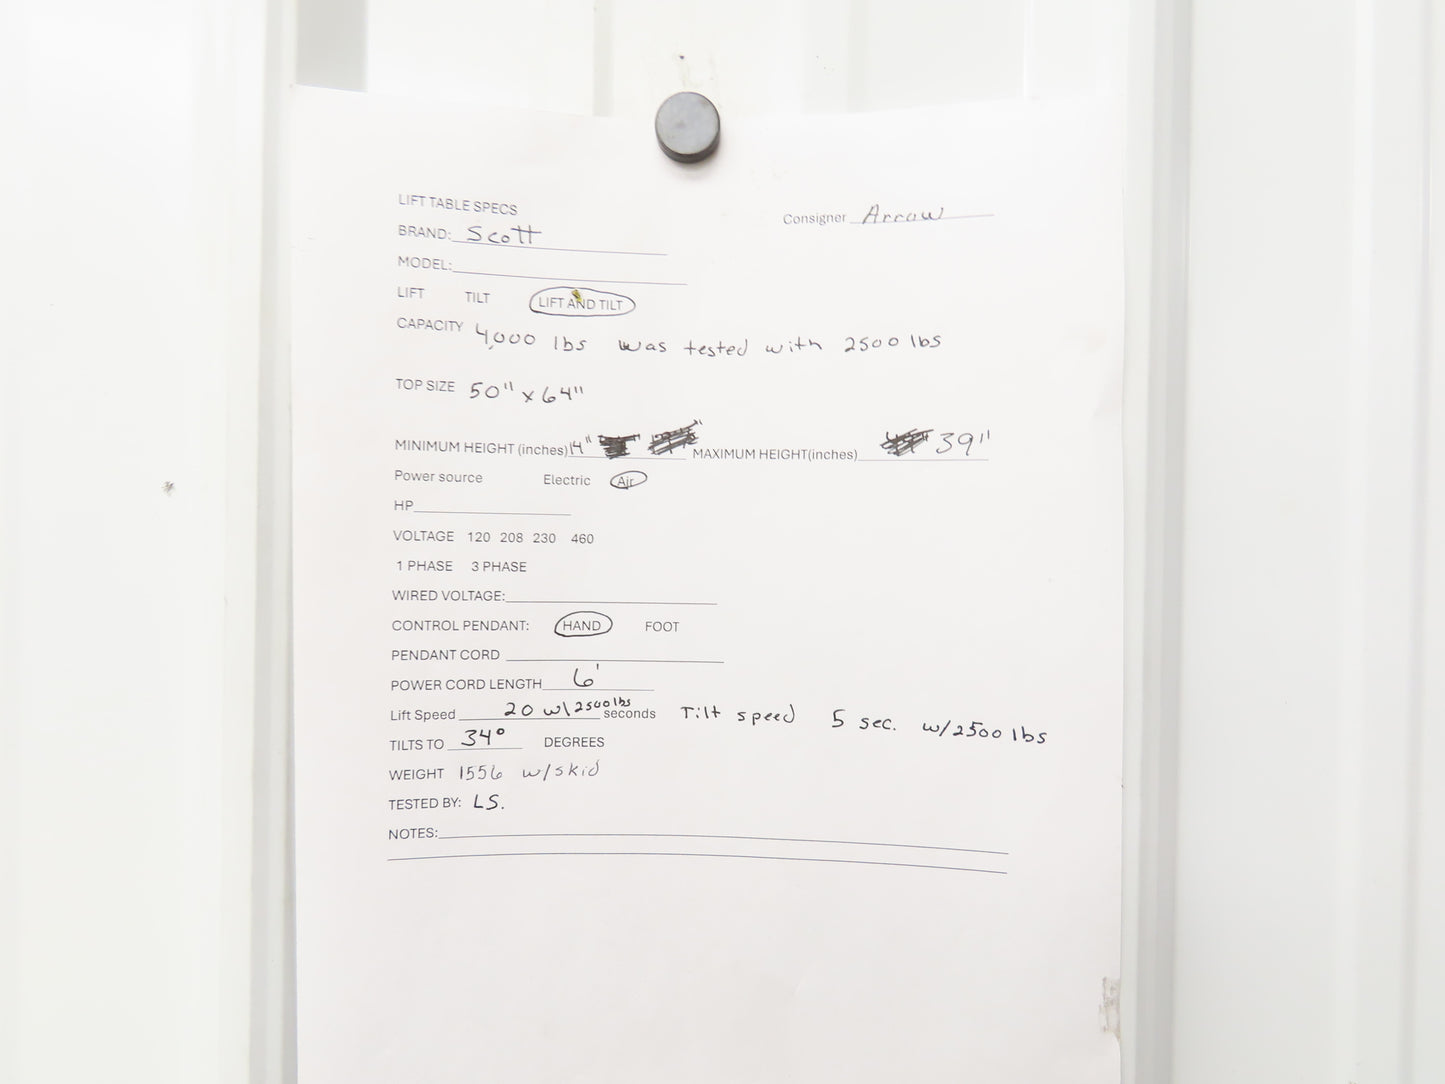 LIFT TABLE SPECS
Consigner Arrow
BRAND: Scott
MODEL:
LIFT TILT LIFT AND TILT
CAPACITY 4,000 lbs was tested with 2500 lbs
TOP SIZE 50" x 64"
MINIMUM HEIGHT (inches) 14" MAXIMUM HEIGHT(inches) 39"
Power source Electric Air
HP
VOLTAGE 120 208 230 460
1 PHASE 3 PHASE
WIRED VOLTAGE:
CONTROL PENDANT: HAND FOOT
PENDANT CORD
POWER CORD LENGTH 6'
Lift Speed 20 w\2500lbs seconds Tilt speed 5 sec. w/2500 lbs
TILTS TO 34° DEGREES
WEIGHT 1556 w/skid
TESTED BY: LS.
NOTES: